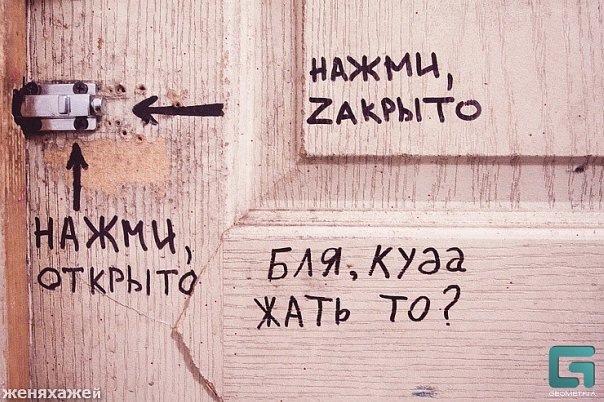 НАЖМИ,
ZАКРЫТО
НАЖМИ,
ОТКРЫТО
БЛЯ, КУДА
ЖАТЬ ТО?
женяхажей
GEOMETRIA